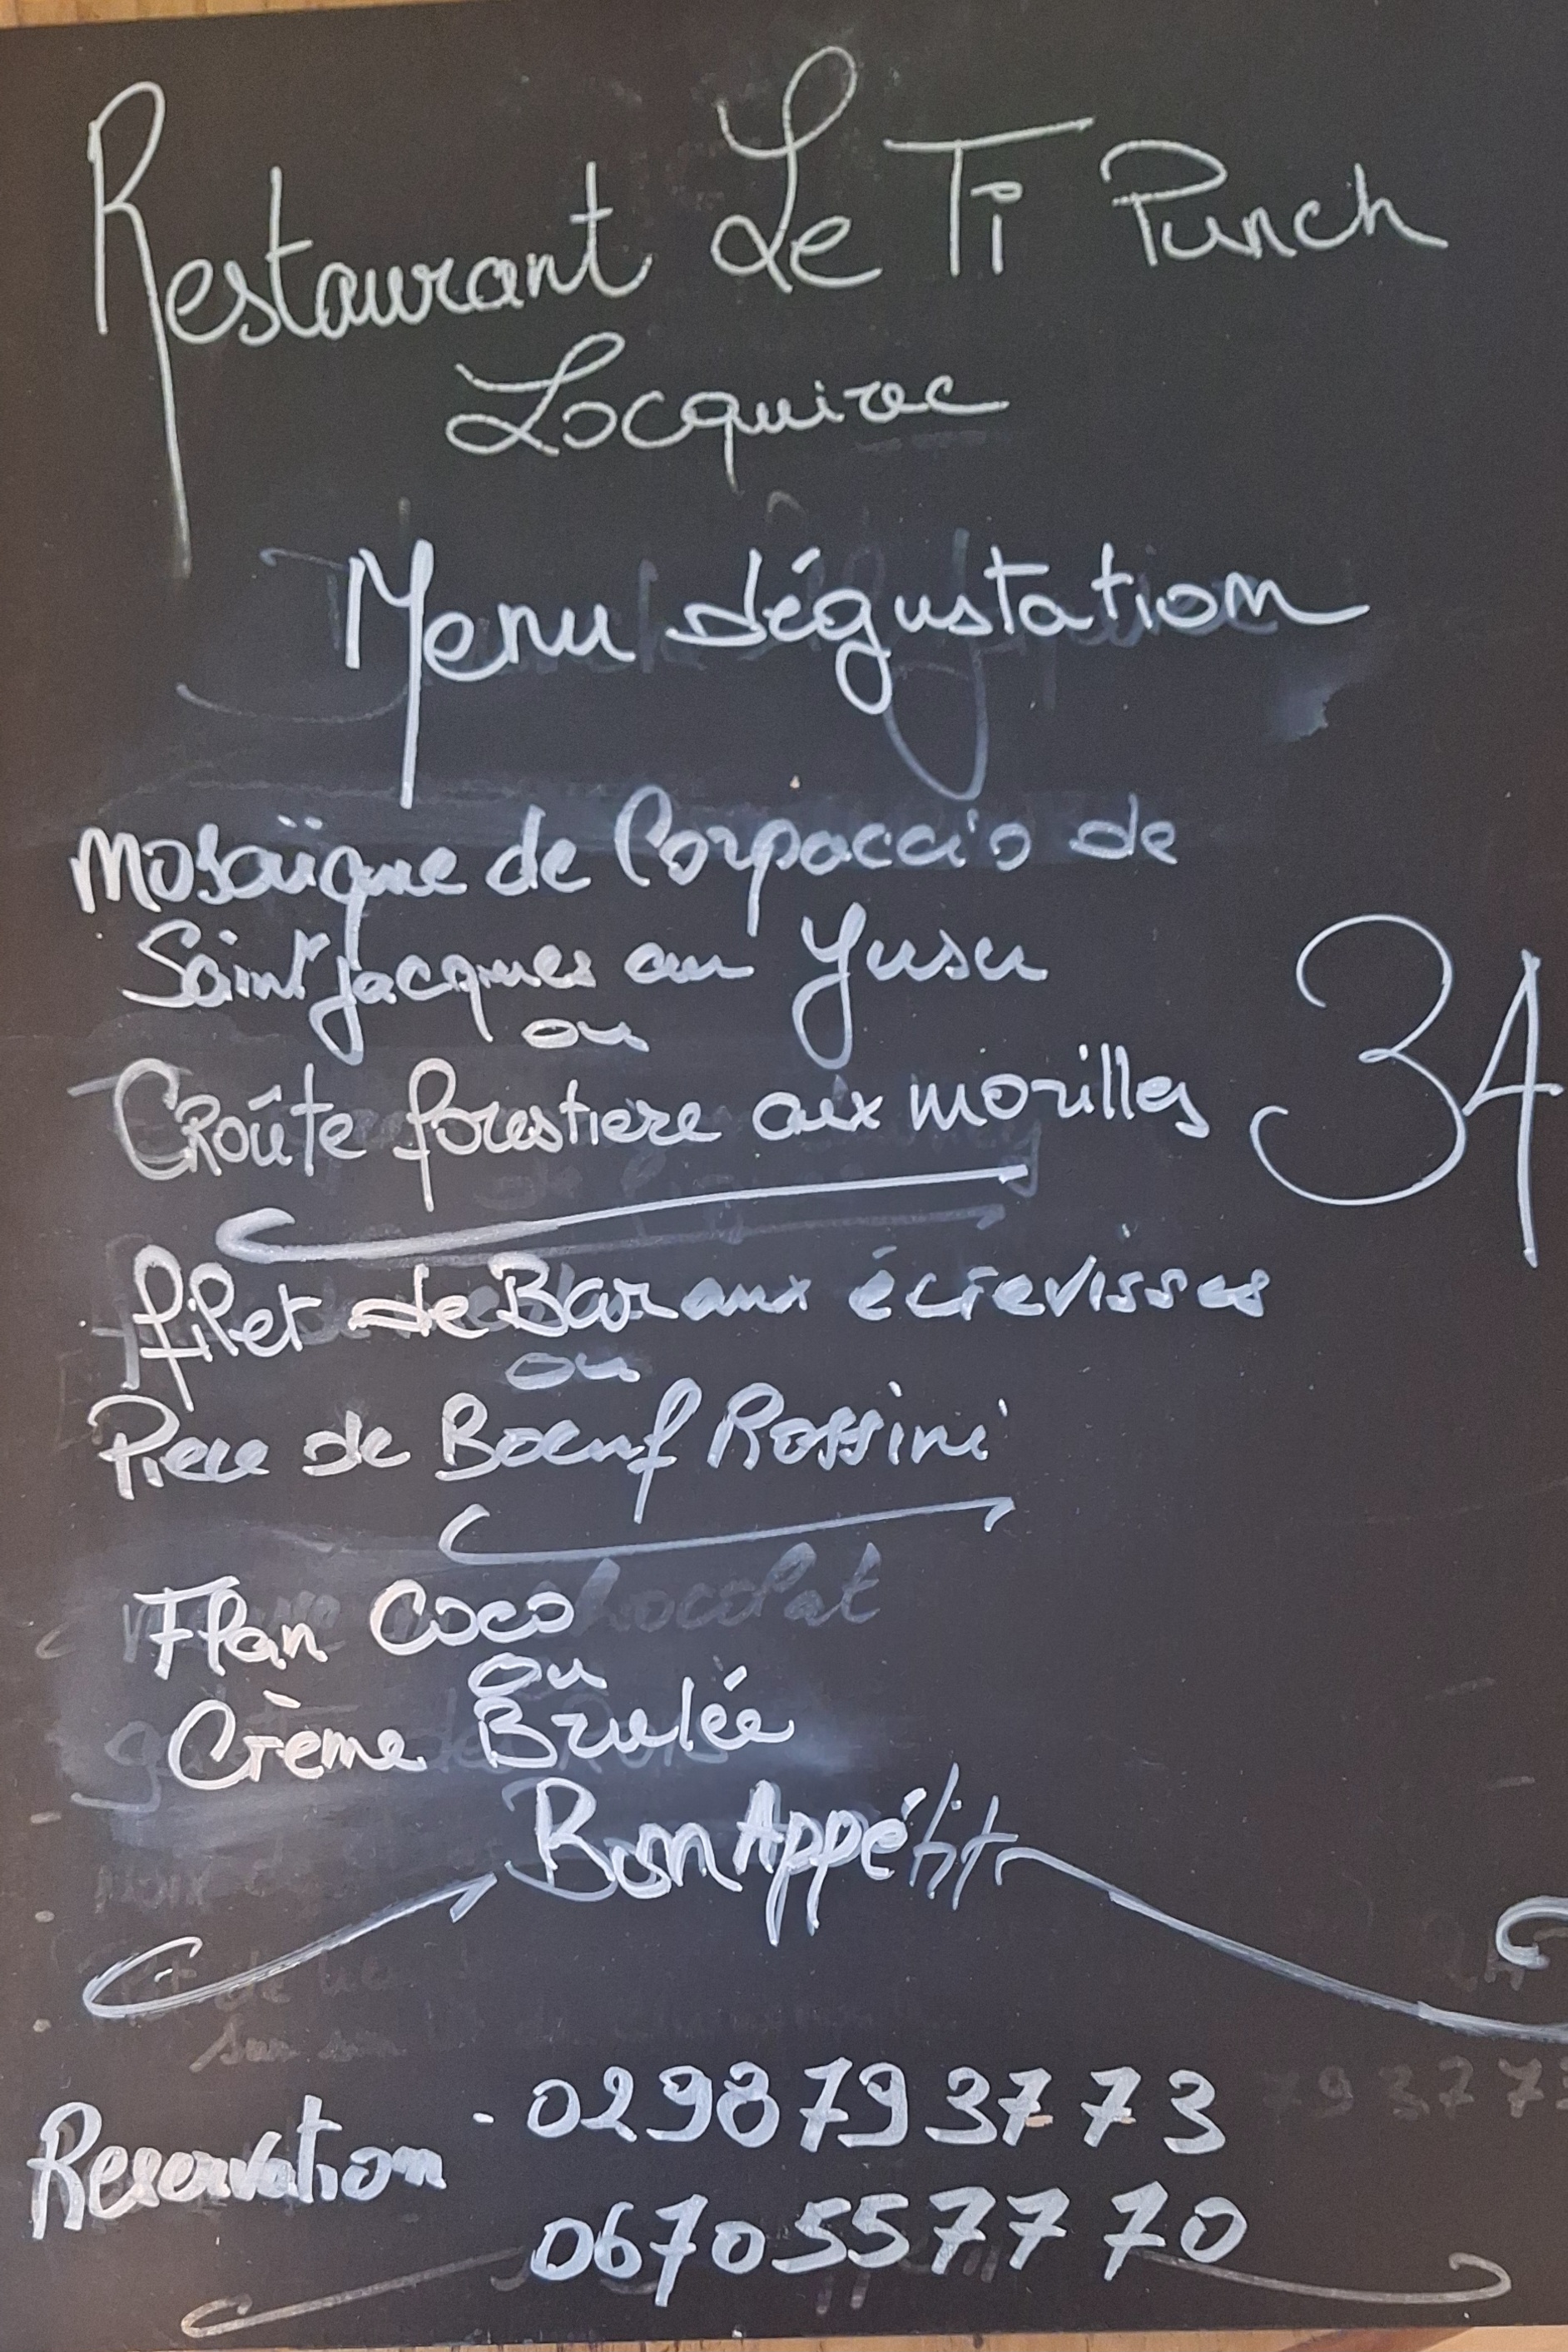 Restaurant Le Ti Punch
Locquirec
Menu dégustation
Mosaïque de Carpaccio de
Saint Jacques au Yusu
ou
Croûte forestiere aux morilles
34
filet de Bar aux écrevisses
ou
Piece de Boeuf Rossini
Flan Coco
ou
Crème Brulée
Bon Appétit
Reservation - 02 98 79 37 73
06 70 55 77 70